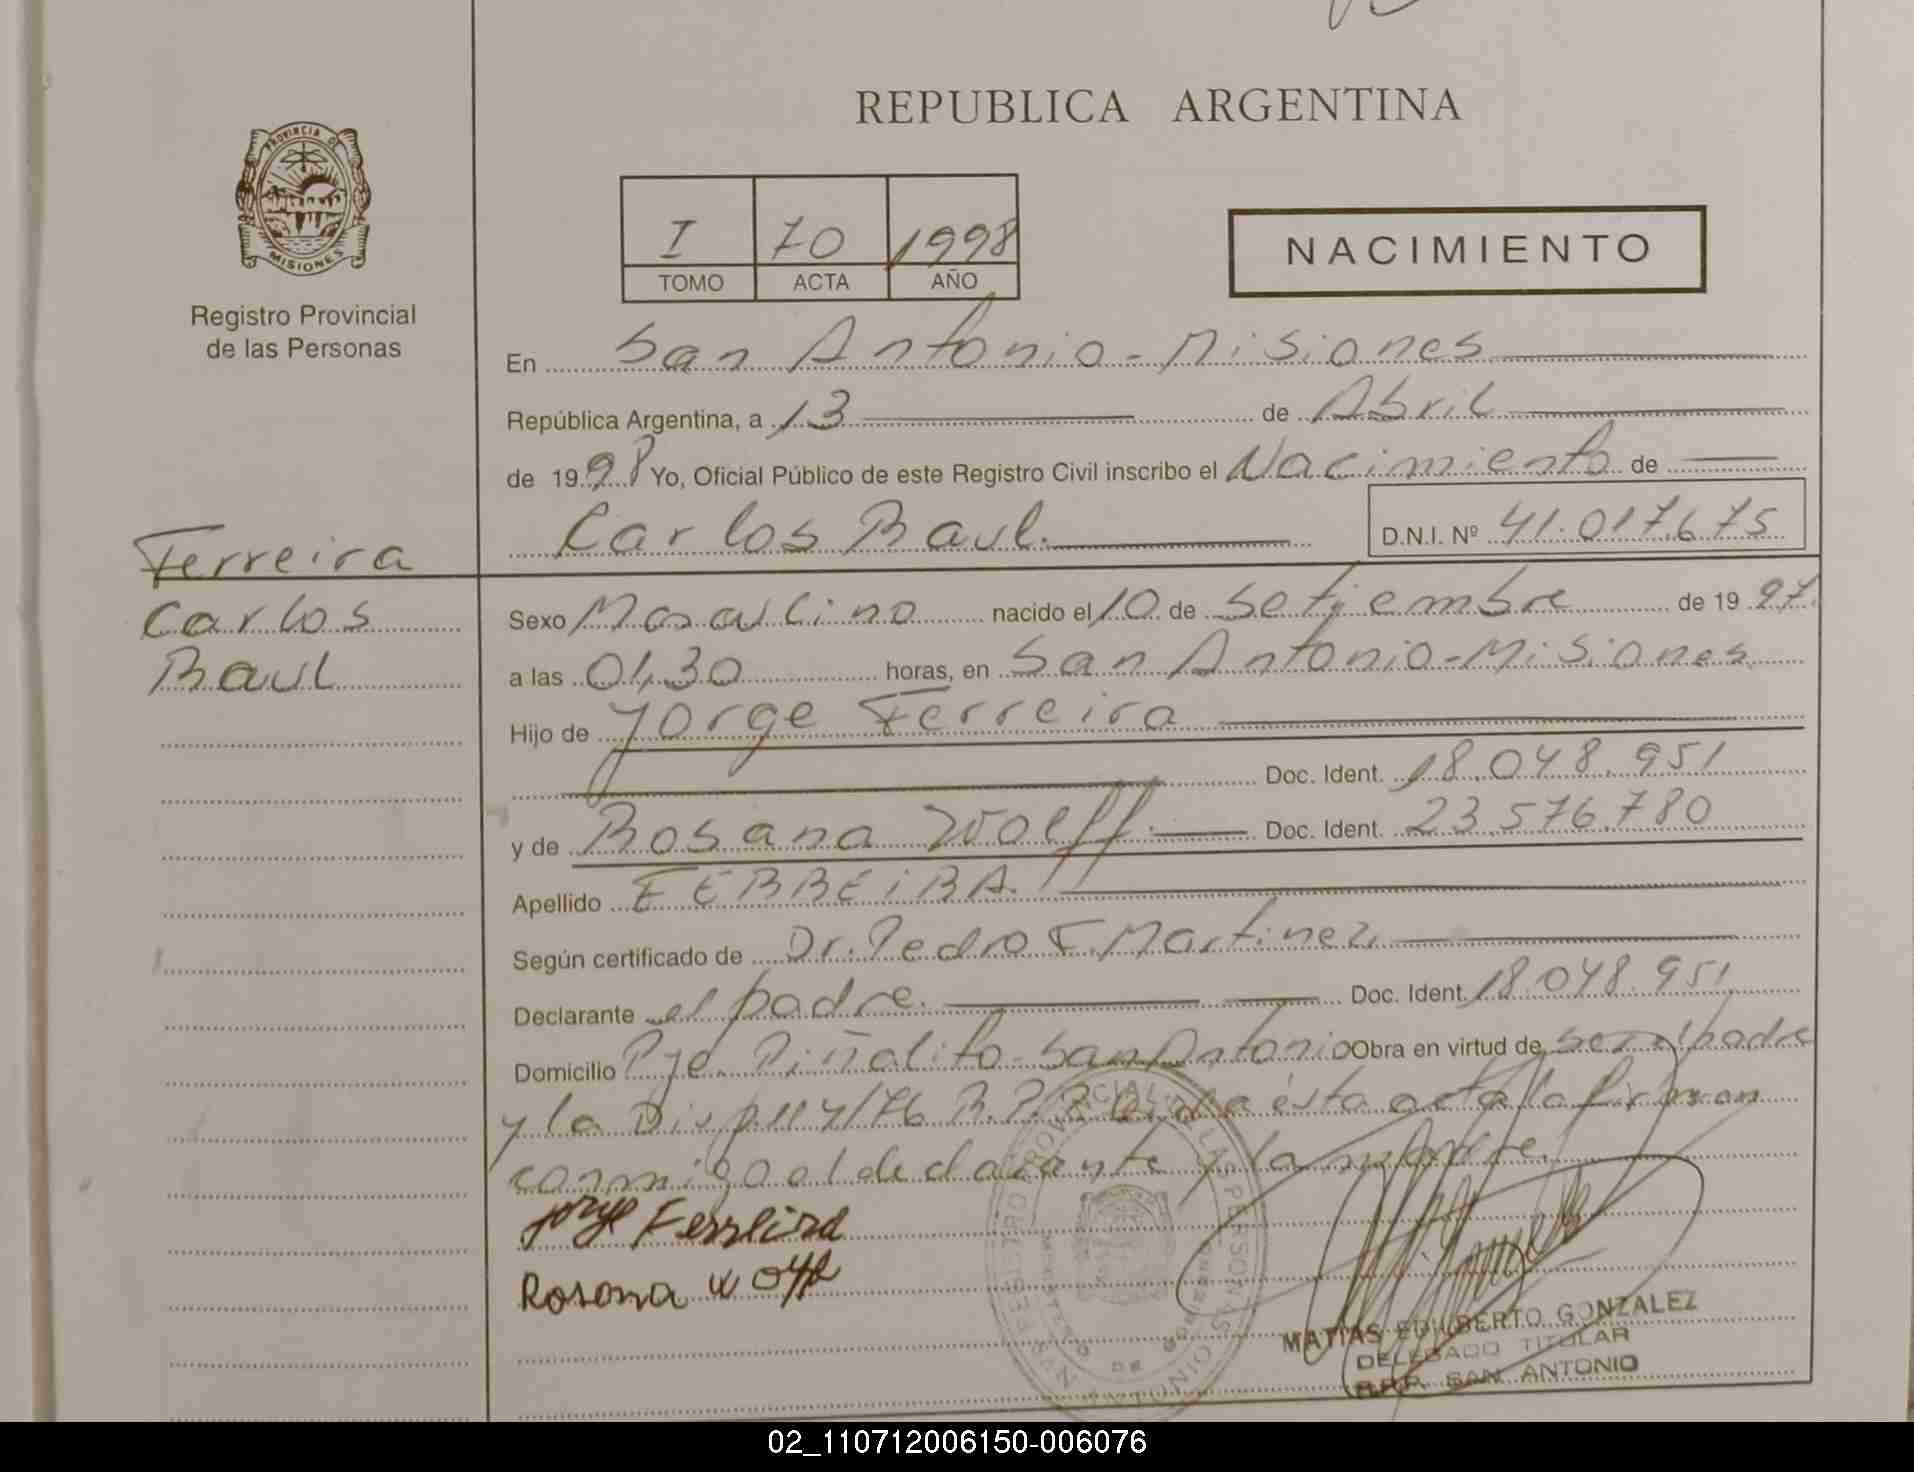 REPUBLICA ARGENTINA
PROVINCIA DE
MISIONES
Registro Provincial
de las Personas
I 70 1998
TOMO ACTA AÑO
NACIMIENTO
En San Antonio - Misiones
República Argentina, a 13 de Abril
de 1998 Yo, Oficial Público de este Registro Civil inscribo el Nacimiento de
Carlos Raul. D.N.I. Nº 41.017.675
Ferreira
Carlos
Raul
Sexo Masculino nacido el 10 de Setiembre de 1997.
a las 01,30 horas, en San Antonio - Misiones
Hijo de Jorge Ferreira
Doc. Ident. 18.048.951
y de Rosana Wolff. Doc. Ident. 23.576.780
Apellido FERREiRA.
Según certificado de Dr. Pedro F. Martinez
Declarante el padre. Doc. Ident. 18.048.951
Domicilio Pje. Piñalito - San Antonio Obra en virtud de ser el padre
y la Disp. 114/76 R.P.P. ésta acta la firman
conmigo el declarante y la madre.
Jorge Ferreira
Rosana Wolff
REGISTRO PROVINCIAL DE LAS PERSONAS
SAN ANTONIO
MATIAS EDILBERTO GONZALEZ
DELEGADO TITULAR
R.P.P. SAN ANTONIO
02_110712006150-006076